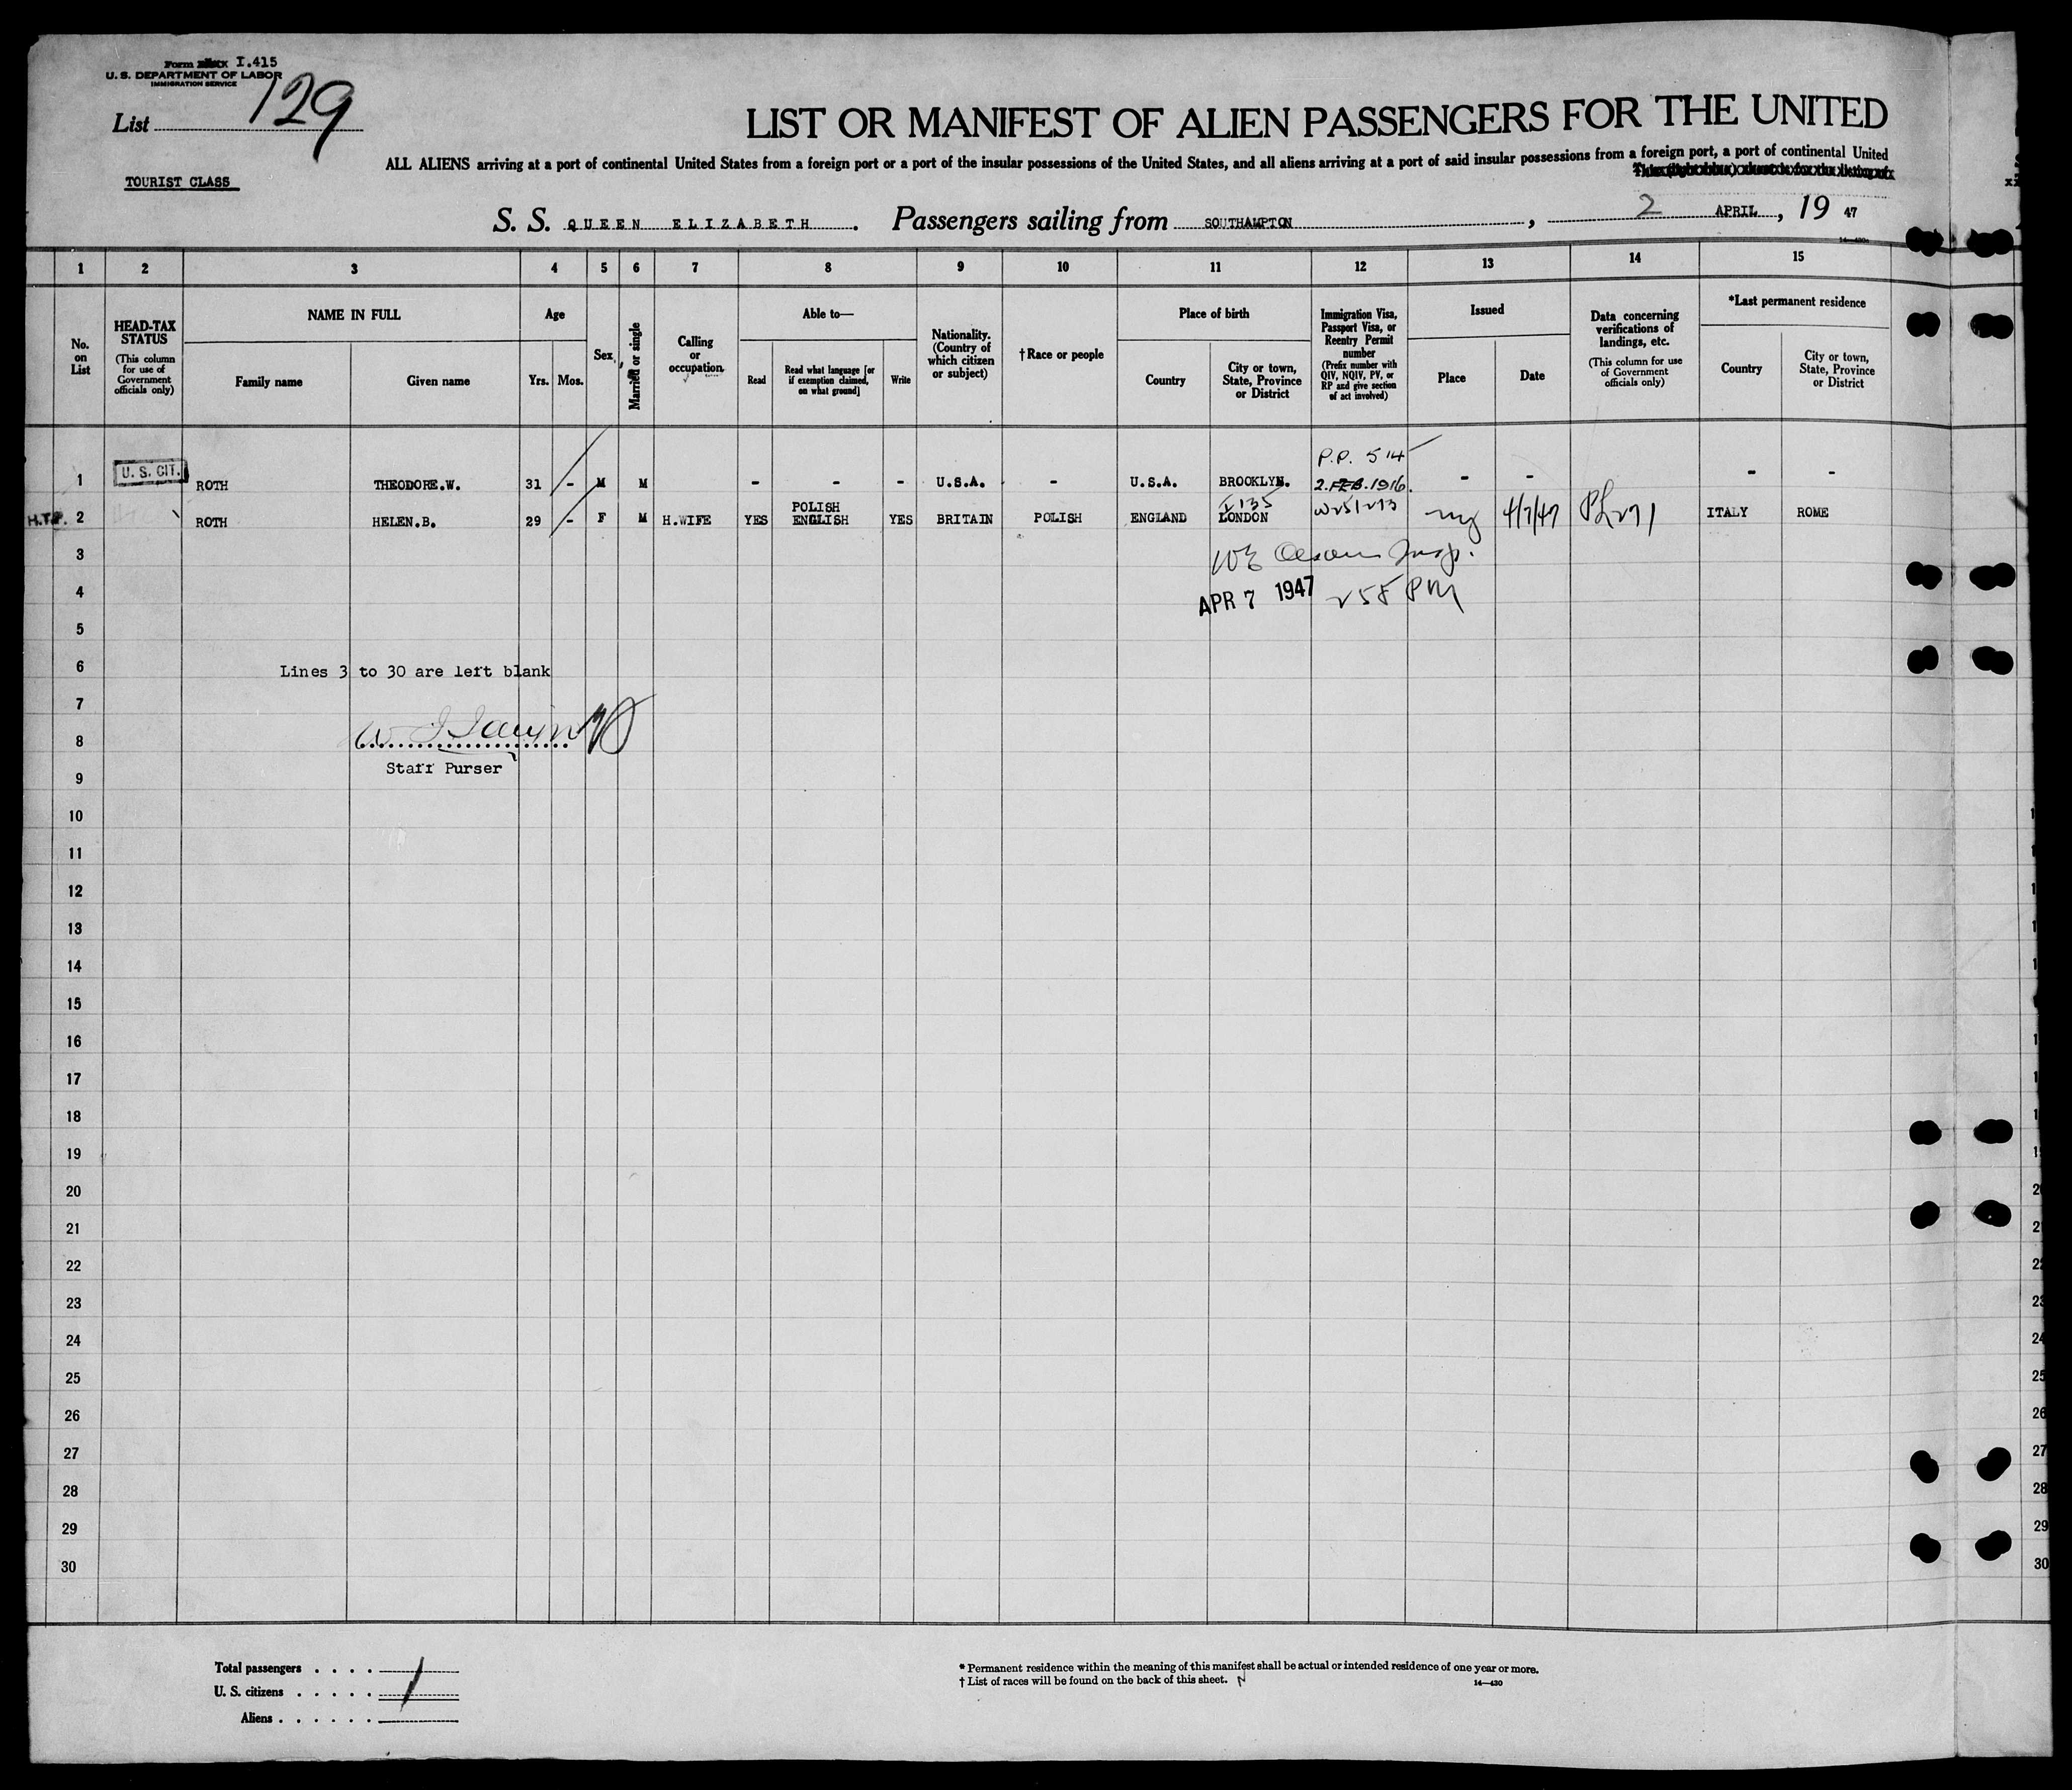 Form I.415
U. S. DEPARTMENT OF LABOR
IMMIGRATION SERVICE
List 129
LIST OR MANIFEST OF ALIEN PASSENGERS FOR THE UNITED
ALL ALIENS arriving at a port of continental United States from a foreign port or a port of the insular possessions of the United States, and all aliens arriving at a port of said insular possessions from a foreign port, a port of continental United
TOURIST CLASS
S. S. QUEEN ELIZABETH. Passengers sailing from SOUTHAMPTON, 2 APRIL, 19 47
1 2 3 4 5 6 7 8 9 10 11 12 13 14 15
No. on List
HEAD-TAX STATUS
(This column for use of Government officials only)
NAME IN FULL
Family name
Given name
Age
Yrs. Mos.
Sex
Married or single
Calling or occupation
Able to—
Read
Read what language [or if exemption claimed, on what ground]
Write
Nationality. (Country of which citizen or subject)
†Race or people
Place of birth
Country
City or town, State, Province or District
Immigration Visa, Passport Visa, or Reentry Permit number
(Prefix number with QIV, NQIV, PV, or RP and give section of act involved)
Issued
Place
Date
Data concerning verifications of landings, etc.
(This column for use of Government officials only)
*Last permanent residence
Country
City or town, State, Province or District
P.P. 514
1 U. S. CIT. ROTH THEODORE.W. 31 - M M - - - U.S.A. - U.S.A. BROOKLYN. 2.FEB.1916. - - - -
POLISH
2 ROTH HELEN.B. 29 - F M H.WIFE YES ENGLISH YES BRITAIN POLISH ENGLAND LONDON 4/7/47 ITALY ROME
3
4 APR 7 1947 258 PM
5
6 Lines 3 to 30 are left blank
7
8
9 Staff Purser
10
11
12
13
14
15
16
17
18
19
20
21
22
23
24
25
26
27
28
29
30
Total passengers . . . .
U. S. citizens . . . . .
Aliens . . . . . .
* Permanent residence within the meaning of this manifest shall be actual or intended residence of one year or more.
† List of races will be found on the back of this sheet.
14—430